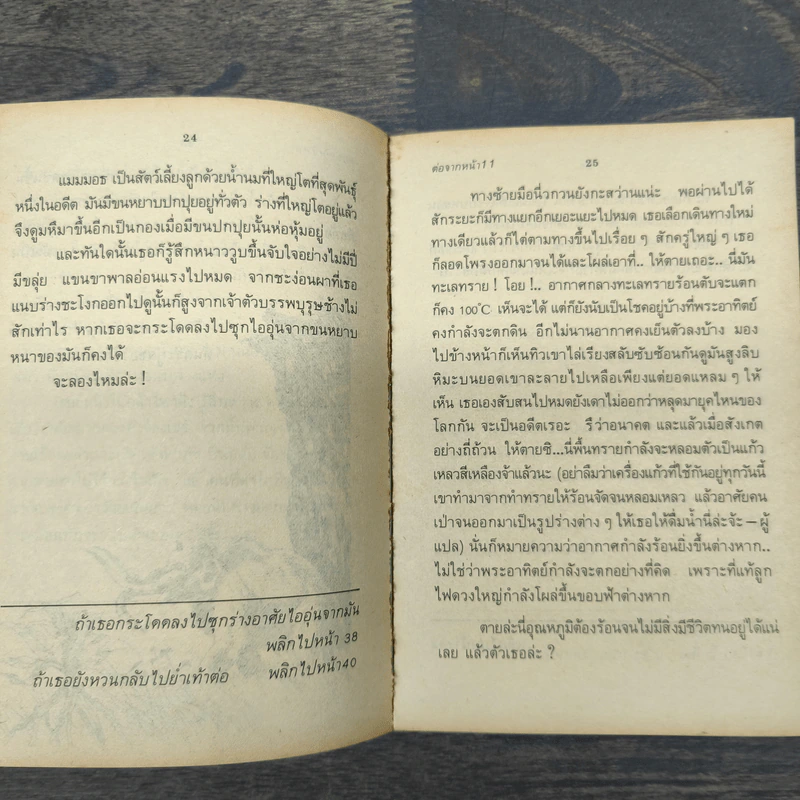 24
แมมมอธ เป็นสัตว์เลี้ยงลูกด้วยน้ำนมที่ใหญ่โตที่สุดพันธุ์
หนึ่งในอดีต มันมีขนหยาบปกปุยอยู่ทั่วตัว ร่างที่ใหญ่โตอยู่แล้ว
จึงดูมหึมาขึ้นอีกเป็นกองเมื่อมีขนปกปุยนั้นห่อหุ้มอยู่
และทันใดนั้นเธอก็รู้สึกหนาววูบขึ้นจับใจอย่างไม่มีปี่
มีขลุ่ย แขนขาพาลอ่อนแรงไปหมด จากชะง่อนผาที่เธอ
แนบร่างชะโงกออกไปดูนั้นก็สูงจากเจ้าตัวบรรพบุรุษช้างไม่
สักเท่าไร หากเธอจะกระโดดลงไปซุกไออุ่นจากขนหยาบ
หนาของมันก็คงได้
จะลองไหมล่ะ !
ถ้าเธอกระโดดลงไปซุกร่างอาศัยไออุ่นจากมัน
พลิกไปหน้า 38
ถ้าเธอยังหวนกลับไปย่ำเท้าต่อ พลิกไปหน้า40
ต่อจากหน้า11
25
ทางซ้ายมือนี่วกวนยังกะสว่านแน่ะ พอผ่านไปได้
สักระยะก็มีทางแยกอีกเยอะแยะไปหมด เธอเลือกเดินทางใหม่
ทางเดียวแล้วก็ไต่ตามทางขึ้นไปเรื่อย ๆ สักครู่ใหญ่ ๆ เธอ
ก็ลอดโพรงออกมาจนได้และโผล่เอาที่.. ให้ตายเถอะ.. นี่มัน
ทะเลทราย ! โอย !.. อากาศกลางทะเลทรายร้อนตับจะแตก
ก็คง 100°C เห็นจะได้ แต่ก็ยังนับเป็นโชคอยู่บ้างที่พระอาทิตย์
คงกำลังจะตกดิน อีกไม่นานอากาศคงเย็นตัวลงบ้าง มอง
ไปข้างหน้าก็เห็นทิวเขาไล่เรียงสลับซับซ้อนกันดูมันสูงลิบ
หิมะบนยอดเขาละลายไปเหลือเพียงแต่ยอดแหลม ๆ ให้
เห็น เธอเองสับสนไปหมดยังเดาไม่ออกว่าหลุดมายุคไหนของ
โลกกัน จะเป็นอดีตเรอะ รึว่าอนาคต และแล้วเมื่อสังเกต
อย่างถี่ถ้วน ให้ตายซิ...นี่พื้นทรายกำลังจะหลอมตัวเป็นแก้ว
เหลวสีเหลืองจ้าแล้วนะ (อย่าลืมว่าเครื่องแก้วที่ใช้กันอยู่ทุกวันนี้
เขาทำมาจากทำทรายให้ร้อนจัดจนหลอมเหลว แล้วอาศัยคน
เป่าจนออกมาเป็นรูปร่างต่าง ๆ ให้เธอให้ดื่มน้ำนี่ล่ะจ้ะ – ผู้
แปล) นั่นก็หมายความว่าอากาศกำลังร้อนยิ่งขึ้นต่างหาก..
ไม่ใช่ว่าพระอาทิตย์กำลังจะตกอย่างที่คิด เพราะที่แท้ลูก
ไฟดวงใหญ่กำลังโผล่ขึ้นขอบฟ้าต่างหาก
ตายล่ะนี่อุณหภูมิต้องร้อนจนไม่มีสิ่งมีชีวิตทนอยู่ได้แน่
เลย แล้วตัวเธอล่ะ ?